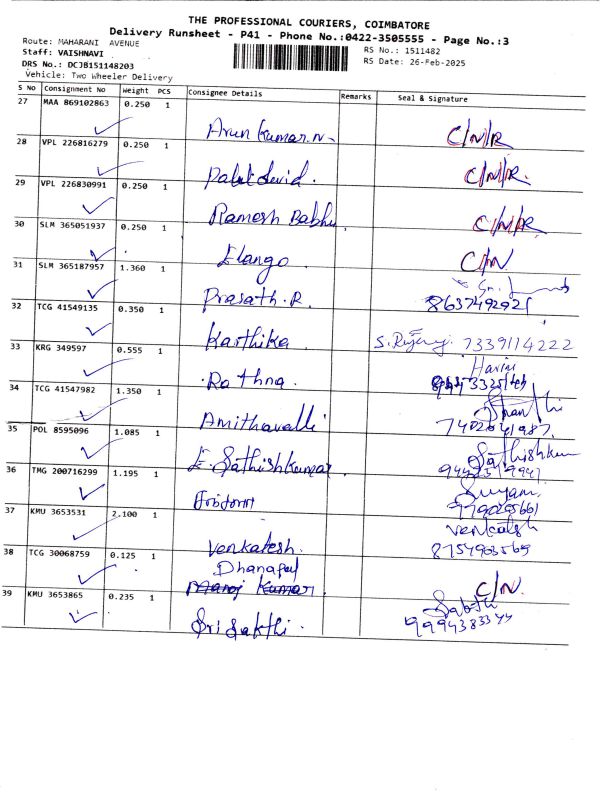 THE PROFESSIONAL COURIERS, COIMBATORE
Delivery Runsheet - P41 - Phone No.:0422-3505555 - Page No.:3
Route: MAHARANI AVENUE
RS No.: 1511482
Staff: VAISHNAVI
RS Date: 26-Feb-2025
DRS No.: DCJB151148203
Vehicle: Two Wheeler Delivery
S No Consignment No Weight PCS Consignee Details Remarks Seal & Signature
27 MAA 869102863 0.250 1 Arun Kumar.N C/N/R
28 VPL 226816279 0.250 1 C/N/R.
29 VPL 226830991 0.250 1 Ramesh Babhu C/N/R
30 SLM 365051937 0.250 1 Elango C/N
31 SLM 365187957 1.360 1 Prasath.R. 8637492921
32 TCG 41549135 0.350 1 Karthika 7339114222
33 KRG 349597 0.555 1 Rathna. Harini
34 TCG 41547982 1.350 1 Amithavalli Shanthi
35 POL 8595096 1.085 1 E.Sathishkumar Sathishkum
36 TMG 200716299 1.195 1
37 KMU 3653531 2.100 1 Venkatesh. Venkatesh
38 TCG 30068759 0.125 1 Dhanapal C/N.
Manoj Kumar
39 KMU 3653865 0.235 1 Sri Sakthi. Sakthi
9994383344